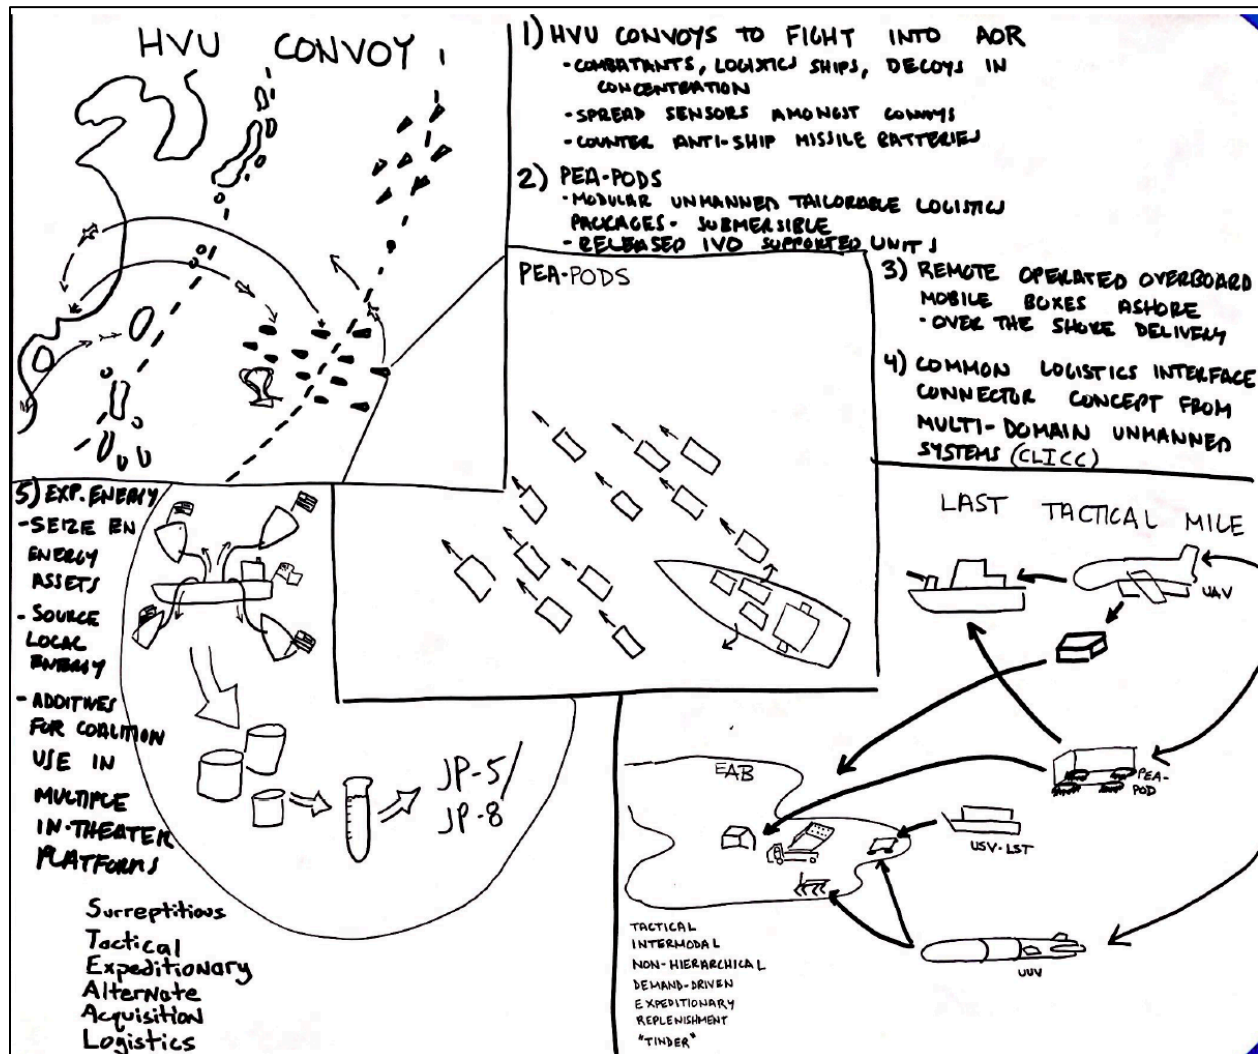 HVU CONVOY
1) HVU CONVOYS TO FIGHT INTO AOR
- COMBATANTS, LOGISTICS SHIPS, DECOYS IN
CONCENTRATION
- SPREAD SENSORS AMONGST CONVOYS
- COUNTER ANTI-SHIP MISSILE BATTERIES
2) PEA-PODS
- MODULAR UNMANNED TAILORABLE LOGISTICS
PACKAGES - SUBMERSIBLE
- RELEASED IVO SUPPORTED UNITS
PEA-PODS
3) REMOTE OPERATED OVERBOARD
MOBILE BOXES ASHORE
- OVER THE SHORE DELIVERY
4) COMMON LOGISTICS INTERFACE
CONNECTOR CONCEPT FROM
MULTI-DOMAIN UNMANNED
SYSTEMS (CLICC)
5) EXP. ENERGY
- SEIZE EN
ENERGY
ASSETS
- SOURCE
LOCAL
ENERGY
- ADDITIVES
FOR COALITION
USE IN
MULTIPLE
IN-THEATER
PLATFORMS
JP-5/
JP-8
Surreptitious
Tactical
Expeditionary
Alternate
Acquisition
Logistics
LAST TACTICAL MILE
UAV
PEA-
POD
EAB
USV-LST
UUV
TACTICAL
INTERMODAL
NON-HIERARCHICAL
DEMAND-DRIVEN
EXPEDITIONARY
REPLENISHMENT
"TINDER"